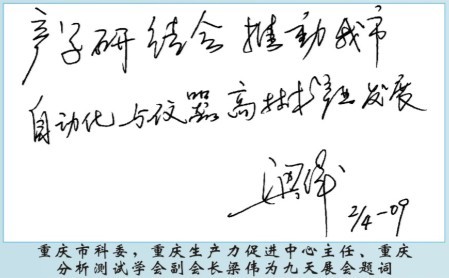 产学研结合推动我市
自动化与仪器高技术产业发展
梁伟
2/4-09
重庆市科委，重庆生产力促进中心主任、重庆
分析测试学会副会长梁伟为九天展会题词